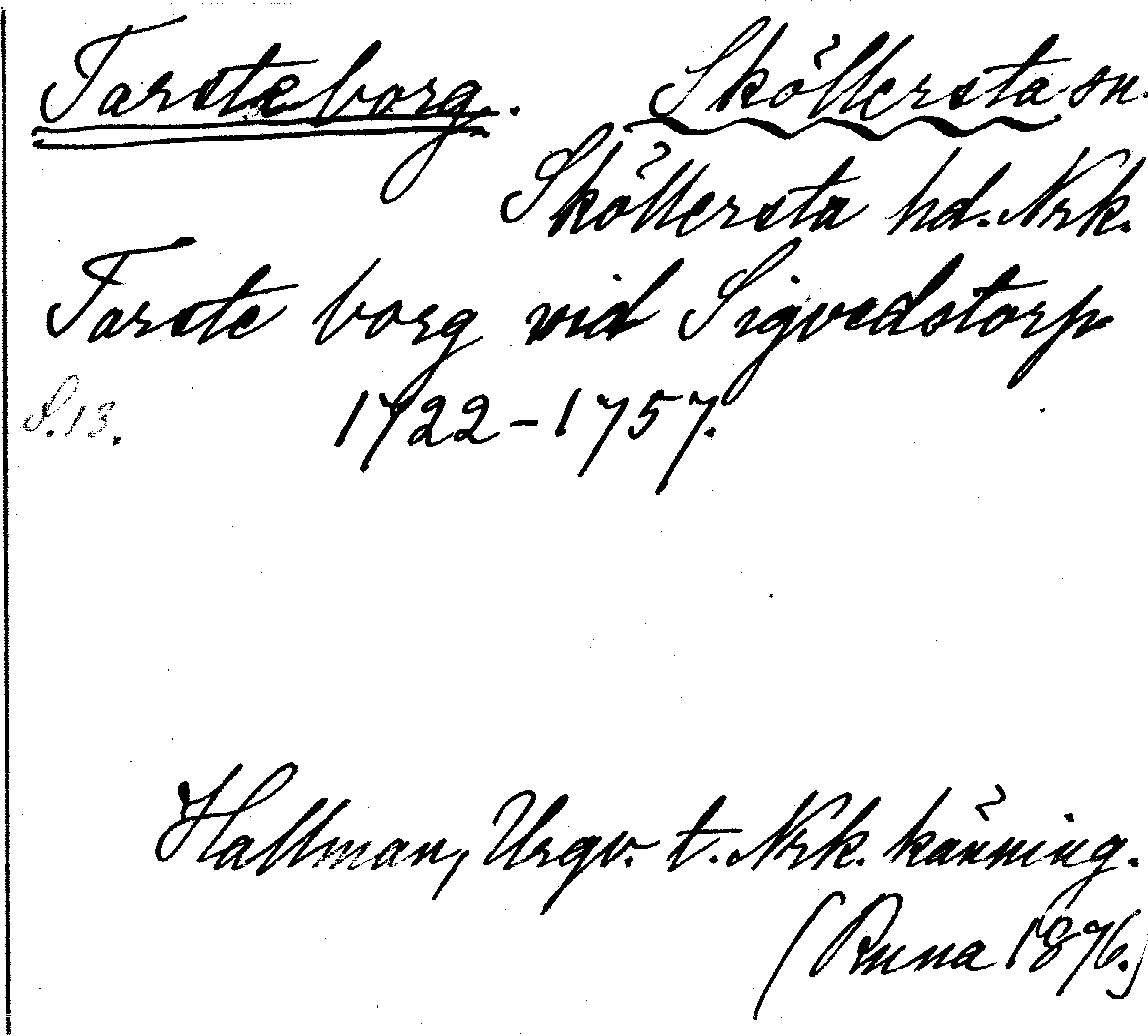 Tarsteborg. Sköllersta sn.
Sköllersta hd. Nrk.
Tarste borg vid Sigvedstorp
S. 13. 1722-1757.
Hallman, Urgv. t. Nrk. känning.
(Runa 1876.)